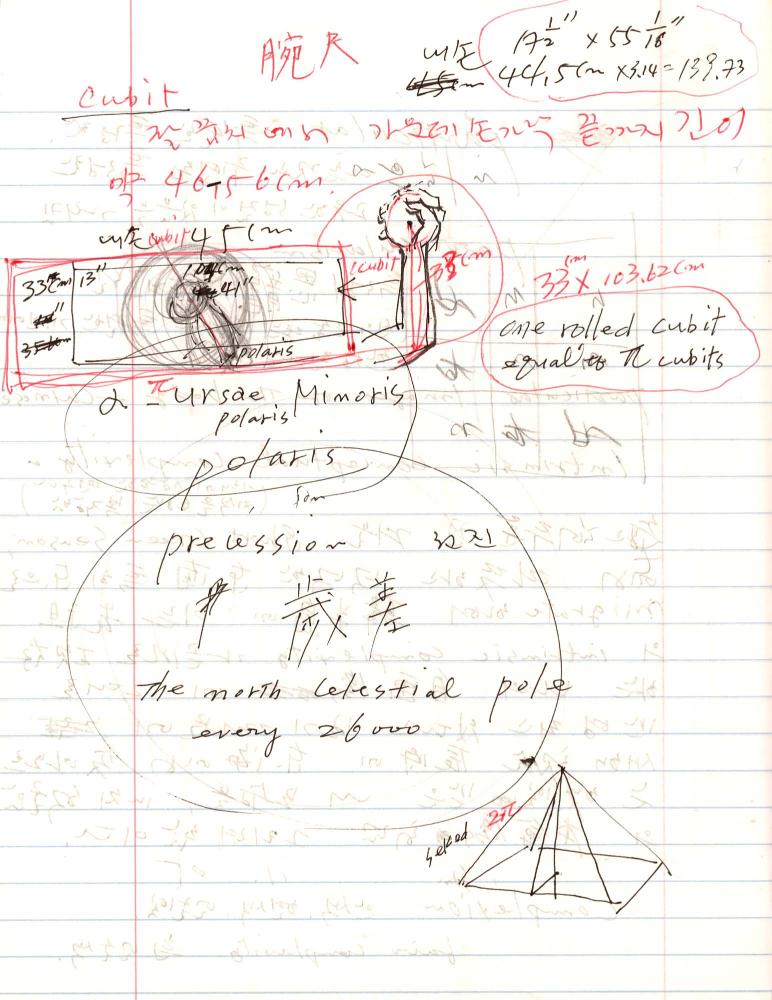 腕尺
내손 17 1/2" x 55 1/16"
44.5cm x3.14=139.73
Cubit
팔꿈치에서 가운데 손가락 끝까지 길이
약 46-56cm.
내손 cubit 45cm
1cubit
33cm
33cm 13"
41"
polaris
33cm x 103.62cm
one rolled cubit
equal π cubits
α π Ursae Minoris
polaris
polaris
for
precession 세차
歲差
The north celestial pole
every 26000
seked 2π